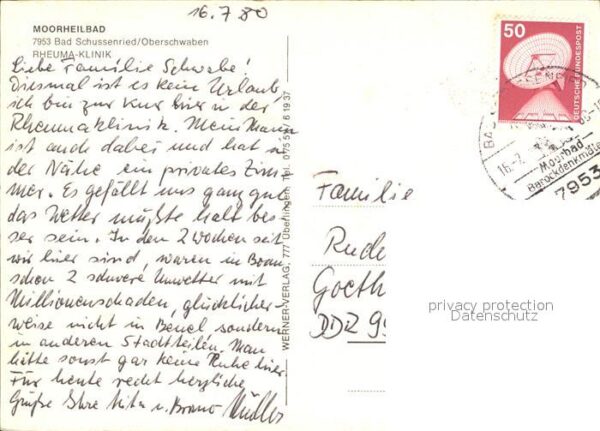 16.7.80
MOORHEILBAD
7953 Bad Schussenried/Oberschwaben
RHEUMA-KLINIK
Liebe Familie Schwabe!
Diesmal ist es kein Urlaub,
ich bin zur Kur hier in der
Rheumaklinik. Mein Mann
ist auch dabei und hat in
der Nähe ein privates Zim
mer. Es gefällt uns ganz gut
das Wetter müßte halt bes
ser sein. In den 2 Wochen seit
wir hier sind, waren in Bonn
schon 2 schwere Unwetter mit
Millionenschaden, glücklicher
weise nicht in Beuel sondern
in anderen Stadtteilen. Man
hätte sonst gar keine Ruhe hier.
Für heute recht herzliche
Grüße Ihre u. Bruno Müller
WERNER-VERLAG, 777 Überlingen, Tel. 075 51 / 6 19 37
50
DEUTSCHE BUNDESPOST
Moorbad
Barockdenkmäle
7953
Familie
Rud
Goeth
DDR 9
privacy protection
Datenschutz